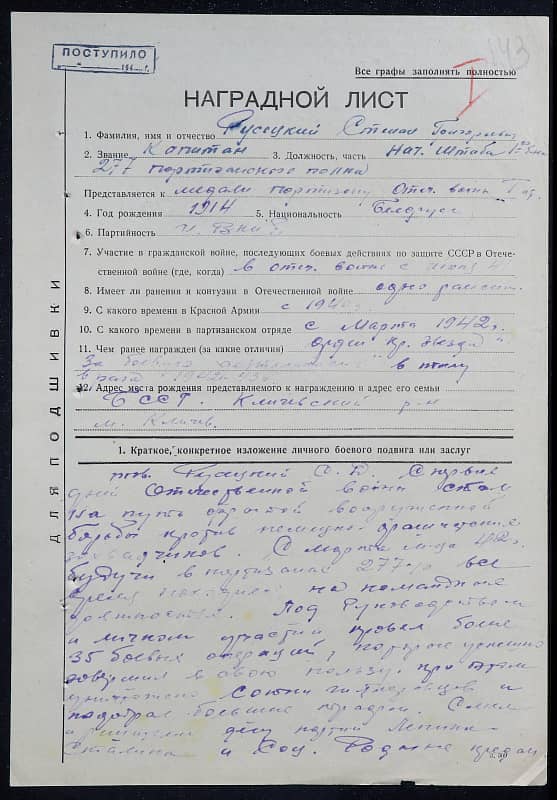 ПОСТУПИЛО
143
Все графы заполнять полностью
I
НАГРАДНОЙ ЛИСТ
1. Фамилия, имя и отчество Русецкий Степан Григорьевич
2. Звание Капитан 3. Должность, часть Нач. Штаба
277 партизанского полка
Представляется к медали партизану Отеч. войны I ст.
4. Год рождения 1914 5. Национальность Беларус
6. Партийность ч. ВКП б
7. Участие в гражданской войне, последующих боевых действиях по защите СССР в Отече-
ственной войне (где, когда) в отеч. войне с июня 41
8. Имеет ли ранения и контузии в Отечественной войне одно ранение
9. С какого времени в Красной Армии с 194
10. С какого времени в партизанском отряде с Марта 1942 г.
11. Чем ранее награжден (за какие отличия) орден Кр. Звезда
За боевую в тылу
врага 1942
12. Адрес места рождения представляемого к награждению и адрес его семьи
БССР. Кличевский р-н
м. Кличев.
ДЛЯ ПОДШИВКИ
1. Краткое, конкретное изложение личного боевого подвига или заслуг
тов. Русецкий С. С первых
дней Отечественной войны стал
на путь открытой вооруженной
борьбы против немецко-
захватчиков. С марта м-ца 42 г.
будучи в партизанах 277 все
время находился на командных
должностях. Под руководством
и личном участии провел более
35 боевых операций, которые успешно
завершил в свою пользу. при этом
уничтожено сотни гитлеровцев и
большие
делу партии Ленина
Сталина и Соц. Родине предан